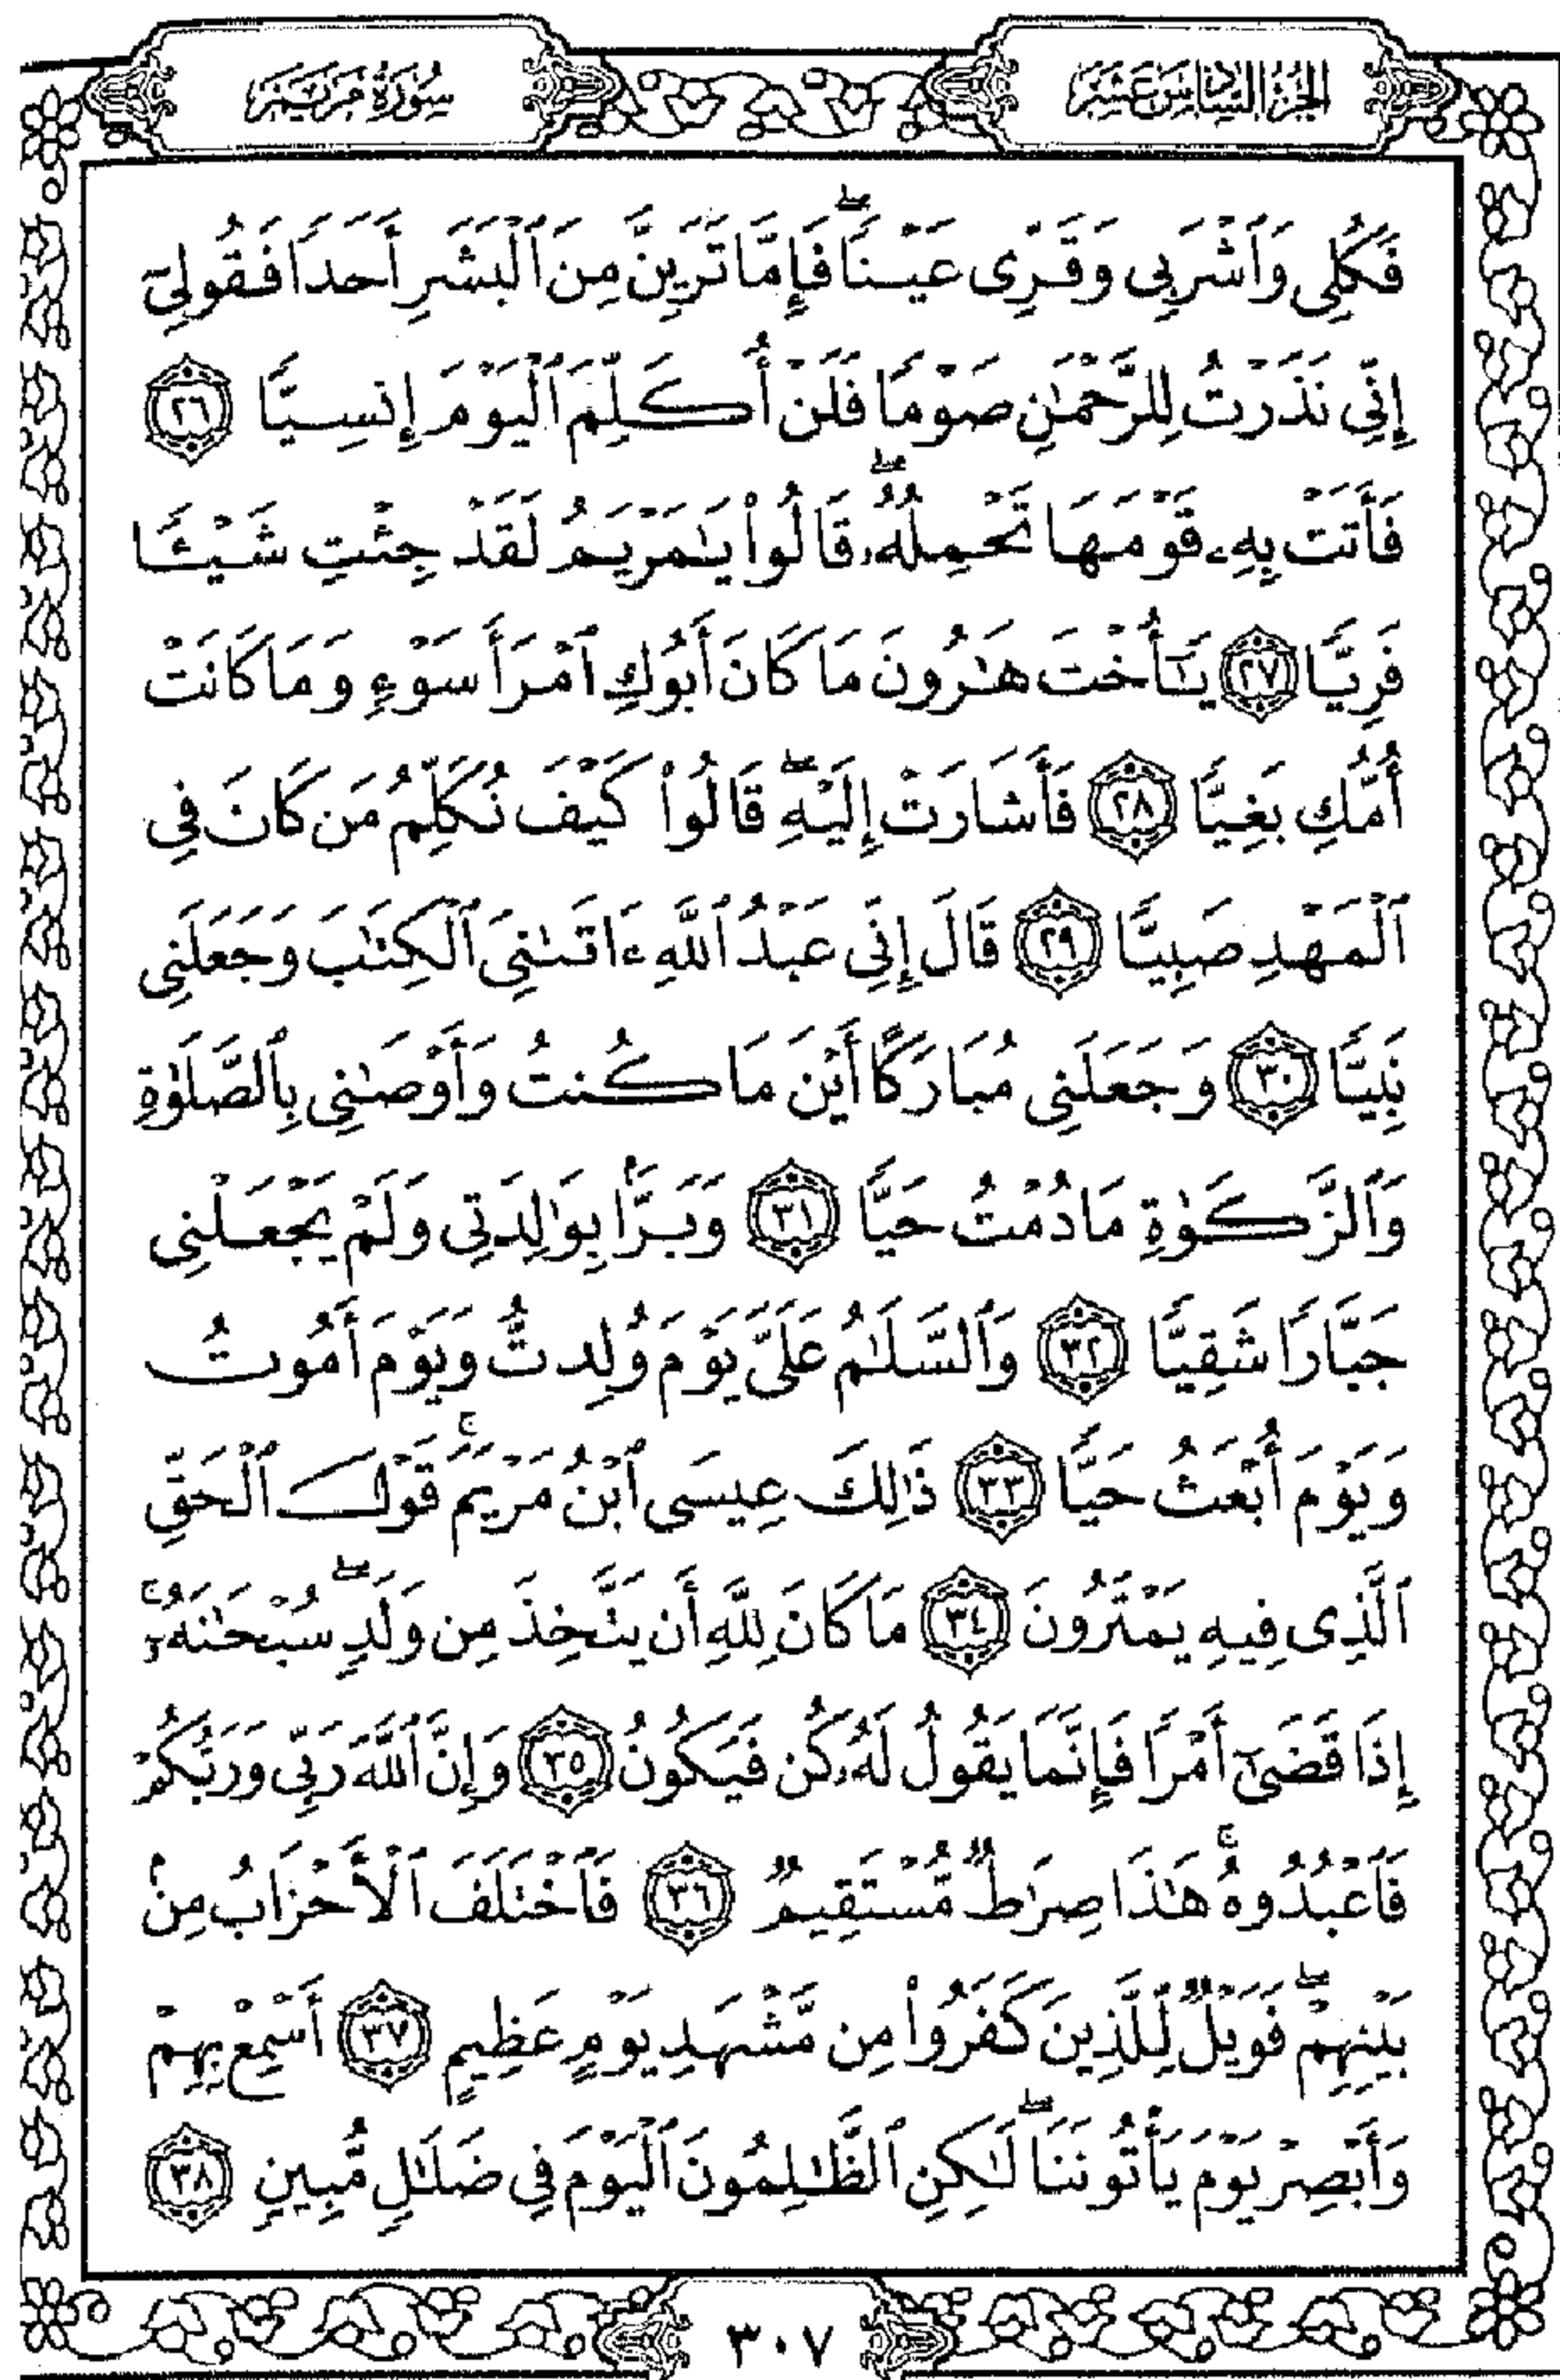 الجزء السادس عشر
سورة مريم
فَكُلِى وَٱشْرَبِى وَقَرِّى عَيْنًا ۖ فَإِمَّا تَرَيِنَّ مِنَ ٱلْبَشَرِ أَحَدًا فَقُولِىٓ
إِنِّى نَذَرْتُ لِلرَّحْمَـٰنِ صَوْمًا فَلَنْ أُكَلِّمَ ٱلْيَوْمَ إِنسِيًّا ٢٦
فَأَتَتْ بِهِۦ قَوْمَهَا تَحْمِلُهُۥ ۖ قَالُوا۟ يَـٰمَرْيَمُ لَقَدْ جِئْتِ شَيْـًٔا
فَرِيًّا ٢٧ يَـٰٓأُخْتَ هَـٰرُونَ مَا كَانَ أَبُوكِ ٱمْرَأَ سَوْءٍ وَمَا كَانَتْ
أُمُّكِ بَغِيًّا ٢٨ فَأَشَارَتْ إِلَيْهِ ۖ قَالُوا۟ كَيْفَ نُكَلِّمُ مَن كَانَ فِى
ٱلْمَهْدِ صَبِيًّا ٢٩ قَالَ إِنِّى عَبْدُ ٱللَّهِ ءَاتَىٰنِىَ ٱلْكِتَـٰبَ وَجَعَلَنِى
نَبِيًّا ٣٠ وَجَعَلَنِى مُبَارَكًا أَيْنَ مَا كُنتُ وَأَوْصَـٰنِى بِٱلصَّلَوٰةِ
وَٱلزَّكَوٰةِ مَا دُمْتُ حَيًّا ٣١ وَبَرًّۢا بِوَٰلِدَتِى وَلَمْ يَجْعَلْنِى
جَبَّارًا شَقِيًّا ٣٢ وَٱلسَّلَـٰمُ عَلَىَّ يَوْمَ وُلِدتُّ وَيَوْمَ أَمُوتُ
وَيَوْمَ أُبْعَثُ حَيًّا ٣٣ ذَٰلِكَ عِيسَى ٱبْنُ مَرْيَمَ ۚ قَوْلَ ٱلْحَقِّ
ٱلَّذِى فِيهِ يَمْتَرُونَ ٣٤ مَا كَانَ لِلَّهِ أَن يَتَّخِذَ مِن وَلَدٍ ۖ سُبْحَـٰنَهُۥٓ ۚ
إِذَا قَضَىٰٓ أَمْرًا فَإِنَّمَا يَقُولُ لَهُۥ كُن فَيَكُونُ ٣٥ وَإِنَّ ٱللَّهَ رَبِّى وَرَبُّكُمْ
فَٱعْبُدُوهُ ۚ هَـٰذَا صِرَٰطٌ مُّسْتَقِيمٌ ٣٦ فَٱخْتَلَفَ ٱلْأَحْزَابُ مِنۢ
بَيْنِهِمْ ۖ فَوَيْلٌ لِّلَّذِينَ كَفَرُوا۟ مِن مَّشْهَدِ يَوْمٍ عَظِيمٍ ٣٧ أَسْمِعْ بِهِمْ
وَأَبْصِرْ يَوْمَ يَأْتُونَنَا ۖ لَـٰكِنِ ٱلظَّـٰلِمُونَ ٱلْيَوْمَ فِى ضَلَـٰلٍ مُّبِينٍ ٣٨
٣٠٧